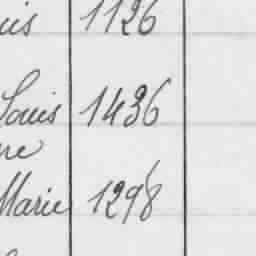 uis 1126
Louis 1436
ne
Marie 1298